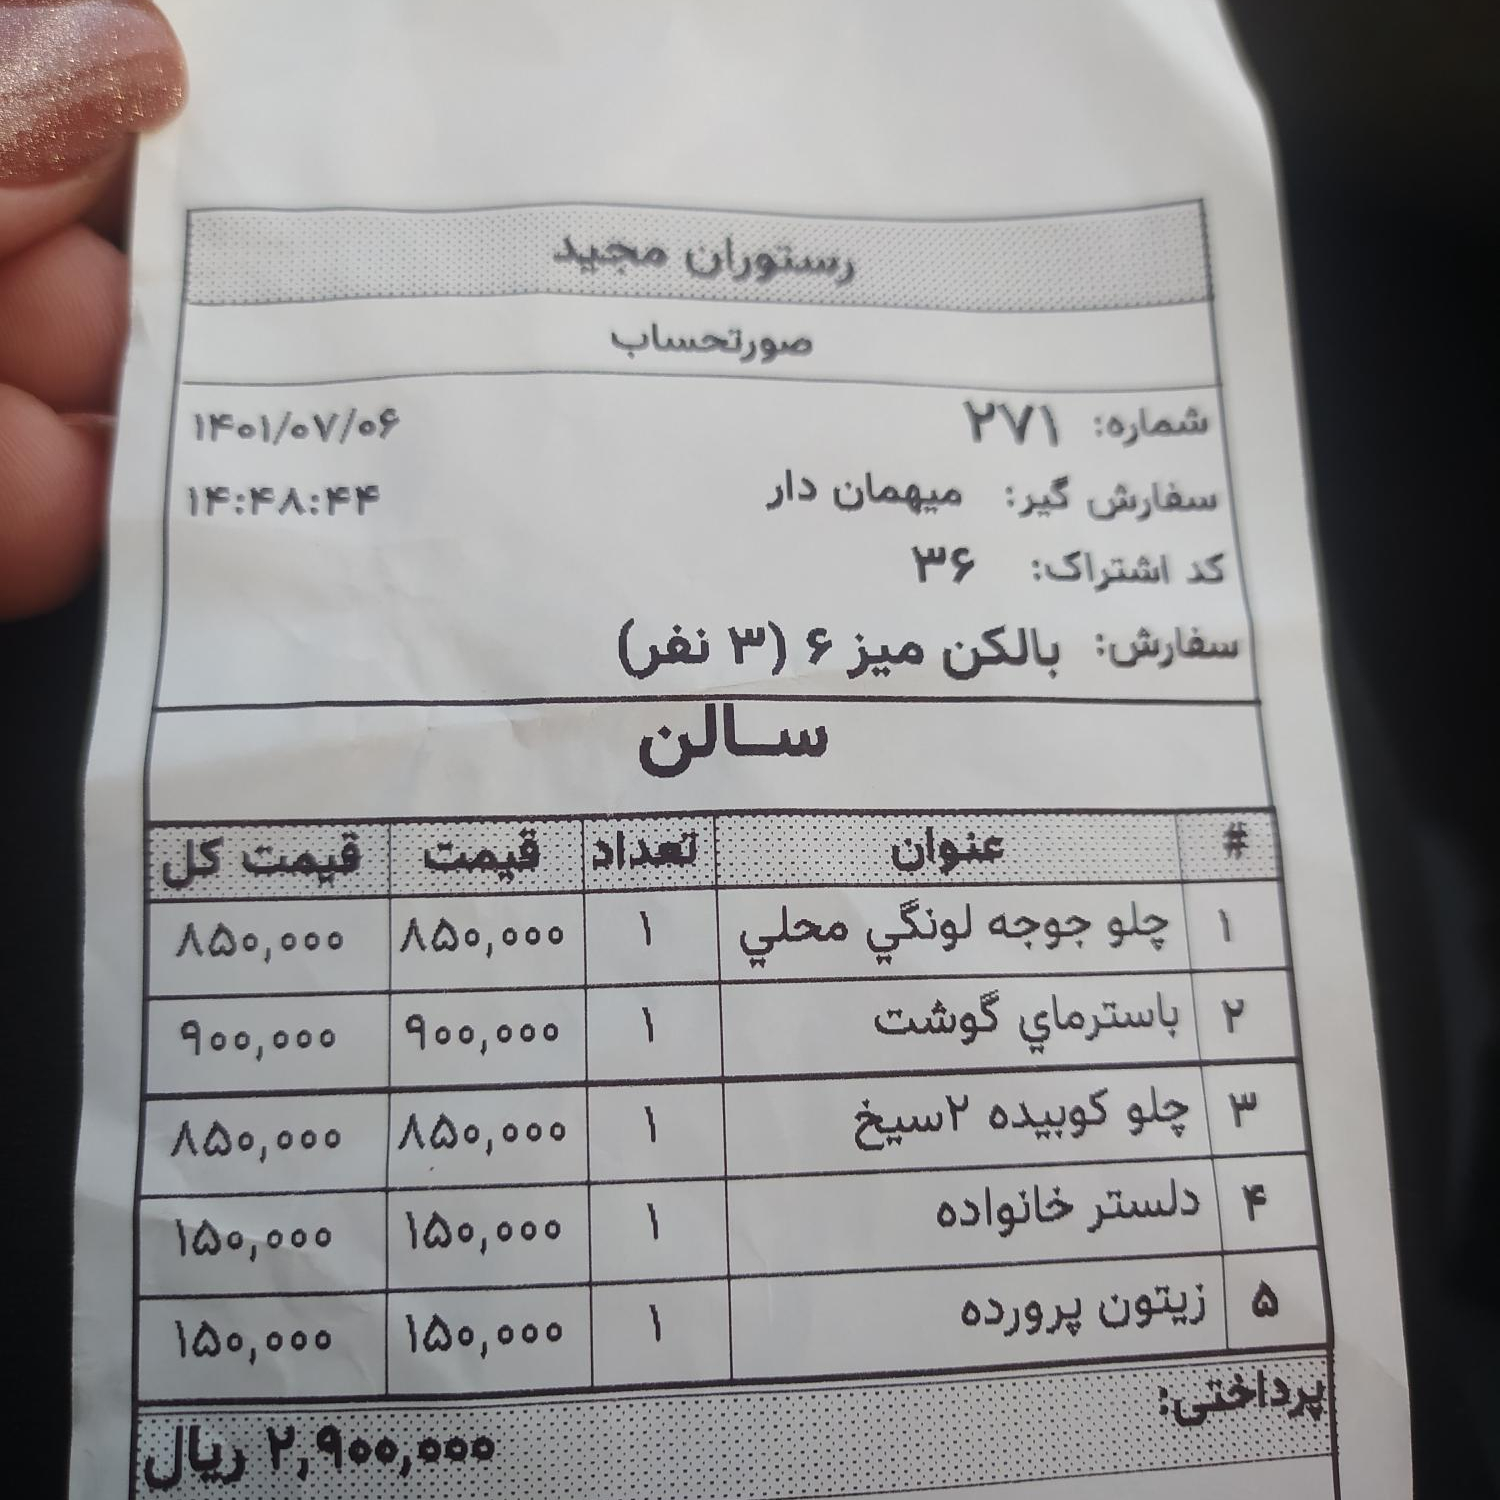 رستوران مجید
صورتحساب
شماره: ۲۷۱ ۱۴۰۱/۰۷/۰۶
سفارش گیر: میهمان دار ۱۴:۴۸:۴۴
کد اشتراک: ۳۶
سفارش: بالکن میز ۶ (۳ نفر)
سـالن
# عنوان تعداد قیمت قیمت کل
۱ چلو جوجه لونگي محلي ۱ ۸۵۰,۰۰۰ ۸۵۰,۰۰۰
۲ باسترماي گوشت ۱ ۹۰۰,۰۰۰ ۹۰۰,۰۰۰
۳ چلو کوبیده ۲سیخ ۱ ۸۵۰,۰۰۰ ۸۵۰,۰۰۰
۴ دلستر خانواده ۱ ۱۵۰,۰۰۰ ۱۵۰,۰۰۰
۵ زیتون پرورده ۱ ۱۵۰,۰۰۰ ۱۵۰,۰۰۰
پرداختی:
۲,۹۰۰,۰۰۰ ریال